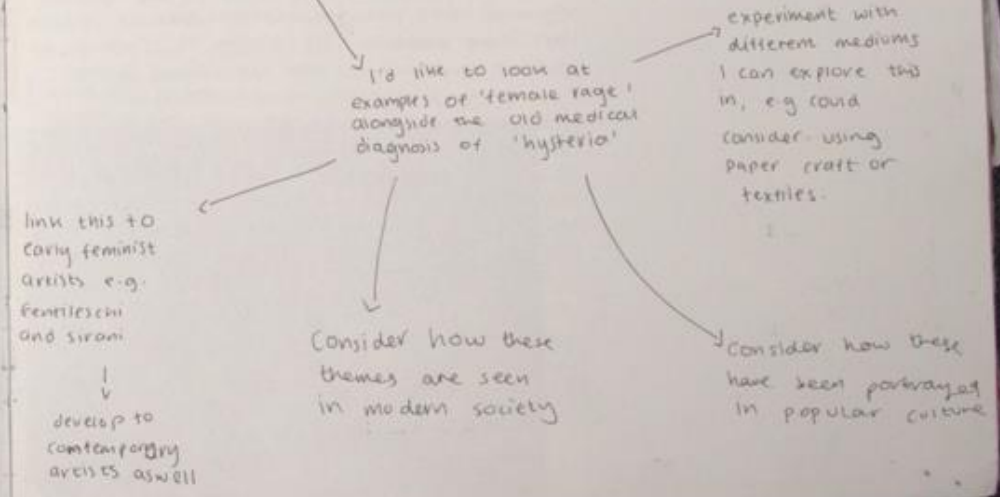 I'd like to look at
examples of 'female rage'
alongside the old medical
diagnosis of 'hysteria'
experiment with
different mediums
I can explore this
in, e.g could
consider using
paper craft or
textiles.
link this to
early feminist
artists e.g.
Gentileschi
and Sirani
develop to
comtemporary
artists aswell
Consider how these
themes are seen
in modern society
Consider how these
have been portrayed
in popular culture